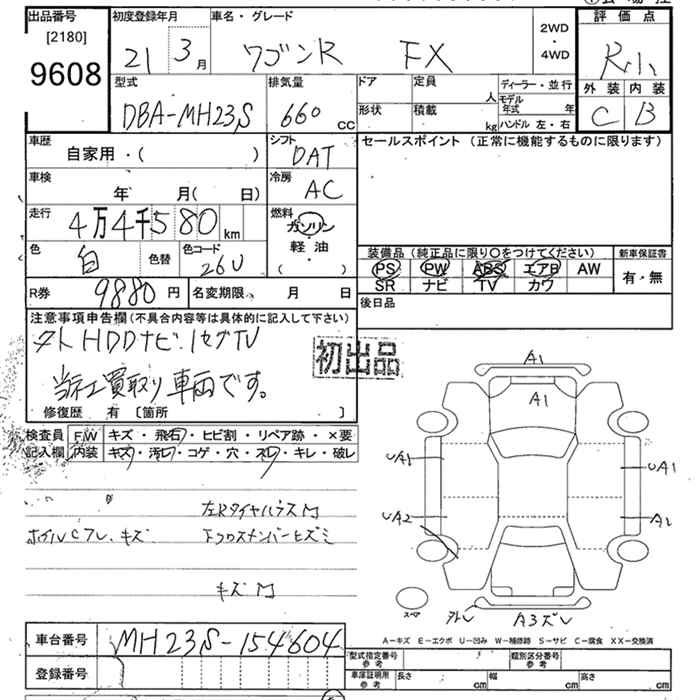 出品番号
[2180]
9608
初度登録年月
21 3月
車名・グレード
ワゴンR FX
2WD
・
4WD
評価点
R
外装 内装
C B
型式
DBA-MH23S
排気量
660 CC
ドア
形状
定員 人
積載 kg
ディーラー・並行
モデル年式 年
ハンドル 左・右
車歴
自家用・( )
シフト
DAT
セールスポイント (正常に機能するものに限ります)
車検
年 月( 日)
冷房
AC
走行
4万4千580km
燃料
ガソリン
・
軽・油
( ・ )
色
白
色替
色コード
26U
装備品(純正品に限り○をつけてください)
PS PW ABS エアB AW
SR ナビ TV カワ
新車保証書
有・無
R券 9880円
名変期限 月 日
後日品
注意事項申告欄(不具合内容等は具体的に記入して下さい)
外 HDDナビ.1セグTV
買取り車両です。
初出品
修復歴 有 〔箇所 〕
検査員記入欄
F/W キズ・飛石・ヒビ割・リペア跡・×要
内装 キズ・汚レ・コゲ・穴・スレ・キレ・破レ
左Rタイヤハウス
キズ
キズ
A1
A1
UA1
UA1
UA2
A2
スペア
A3ズレ
車台番号 MH23S-154604
登録番号
A－キズ E－エクボ U－凹み W－補修跡 S－サビ C－腐食 XX－交換済
型式指定番号参考
類別区分番号参考
車庫証明用参考
長さ cm
幅 cm
高さ cm